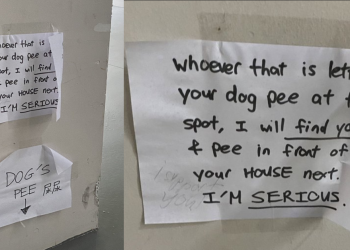 hoever that is
our dog pee at
ot, I will find
pee in front o
your HOUSE next.
I'M SERIOUS
DOG'S
PEE
whoever that is let
your dog pee at t
spot, I will find yo
& pee in front of
your HOUSE next.
I'M SERIOUS.